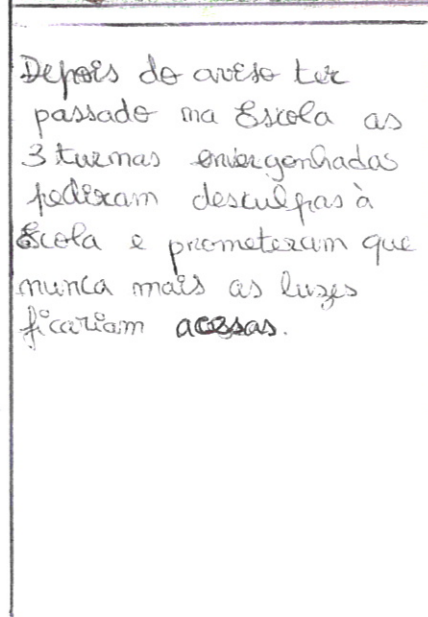 Depois do aviso ter
passado na Escola as
3 turmas envergonhadas
pediram desculpas à
Escola e prometeram que
nunca mais as luzes
ficariam acesas.